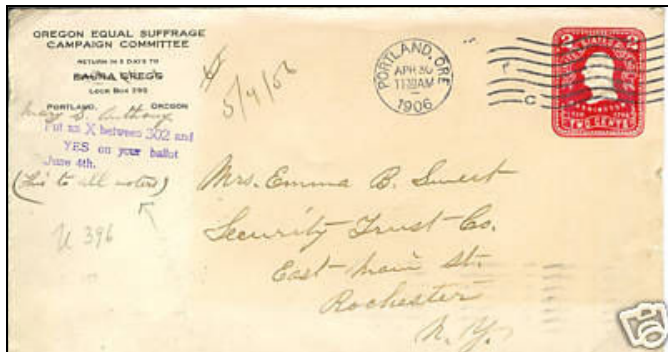 OREGON EQUAL SUFFRAGE
CAMPAIGN COMMITTEE
RETURN IN 5 DAYS TO
LAURA GREGG
LOCK BOX 295
PORTLAND, OREGON
Mary S. Anthony
Put an X between 302 and
YES on your ballot
June 4th.
(This to all voters)
U 396
5/4/06
PORTLAND, ORE
APR 30
1130AM
1906
2
2
TWO CENTS
Mrs. Emma B. Sweet
Security Trust Co.
East Main St.
Rochester
N.Y.